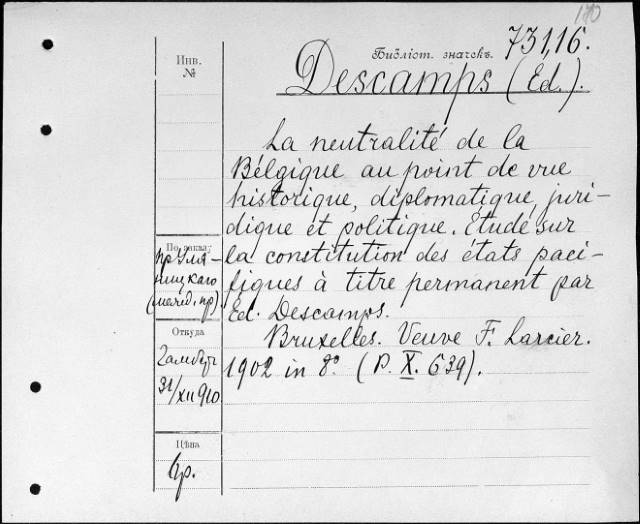 170
Библіот. значекъ. 731,16.
Descamps (Ed.).
La neutralité de la
Bélgique au point de vue
historique, diplomatique, juri-
dique et politique. Etude sur
la constitution des états paci-
fiques à titre permanent par
Ed. Descamps.
Bruxelles. Veuve F. Larcier.
1902 in 8° (P. X. 639).
Инв.
№
По заказу
пр. Уля-
ницкаго
Откуда
31/XII 910
Цѣна
6р.